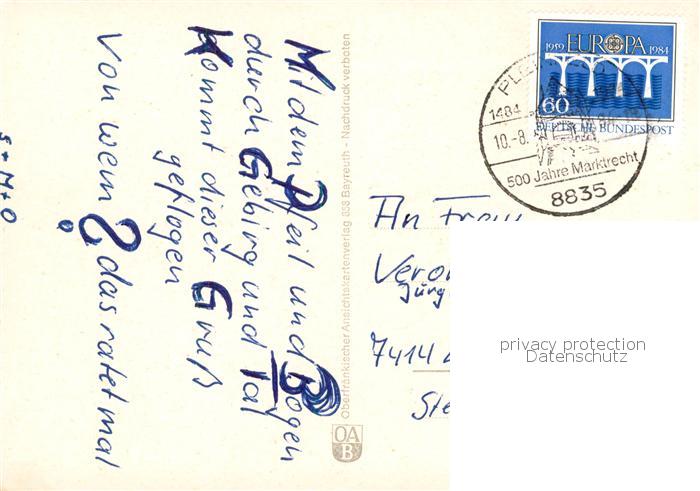 Mit dem Pfeil und Bogen
durch Gebirg und Tal
Kommt dieser Gruß
geflogen
Von wem? das ratet mal
Oberfränkischer Ansichtskartenverlag 858 Bayreuth - Nachdruck verboten
OA
B
1959 EUROPA 1984
60
DEUTSCHE BUNDESPOST
1484
10.-8.
500 Jahre Marktrecht
8835
An Frau
7414
privacy protection
Datenschutz